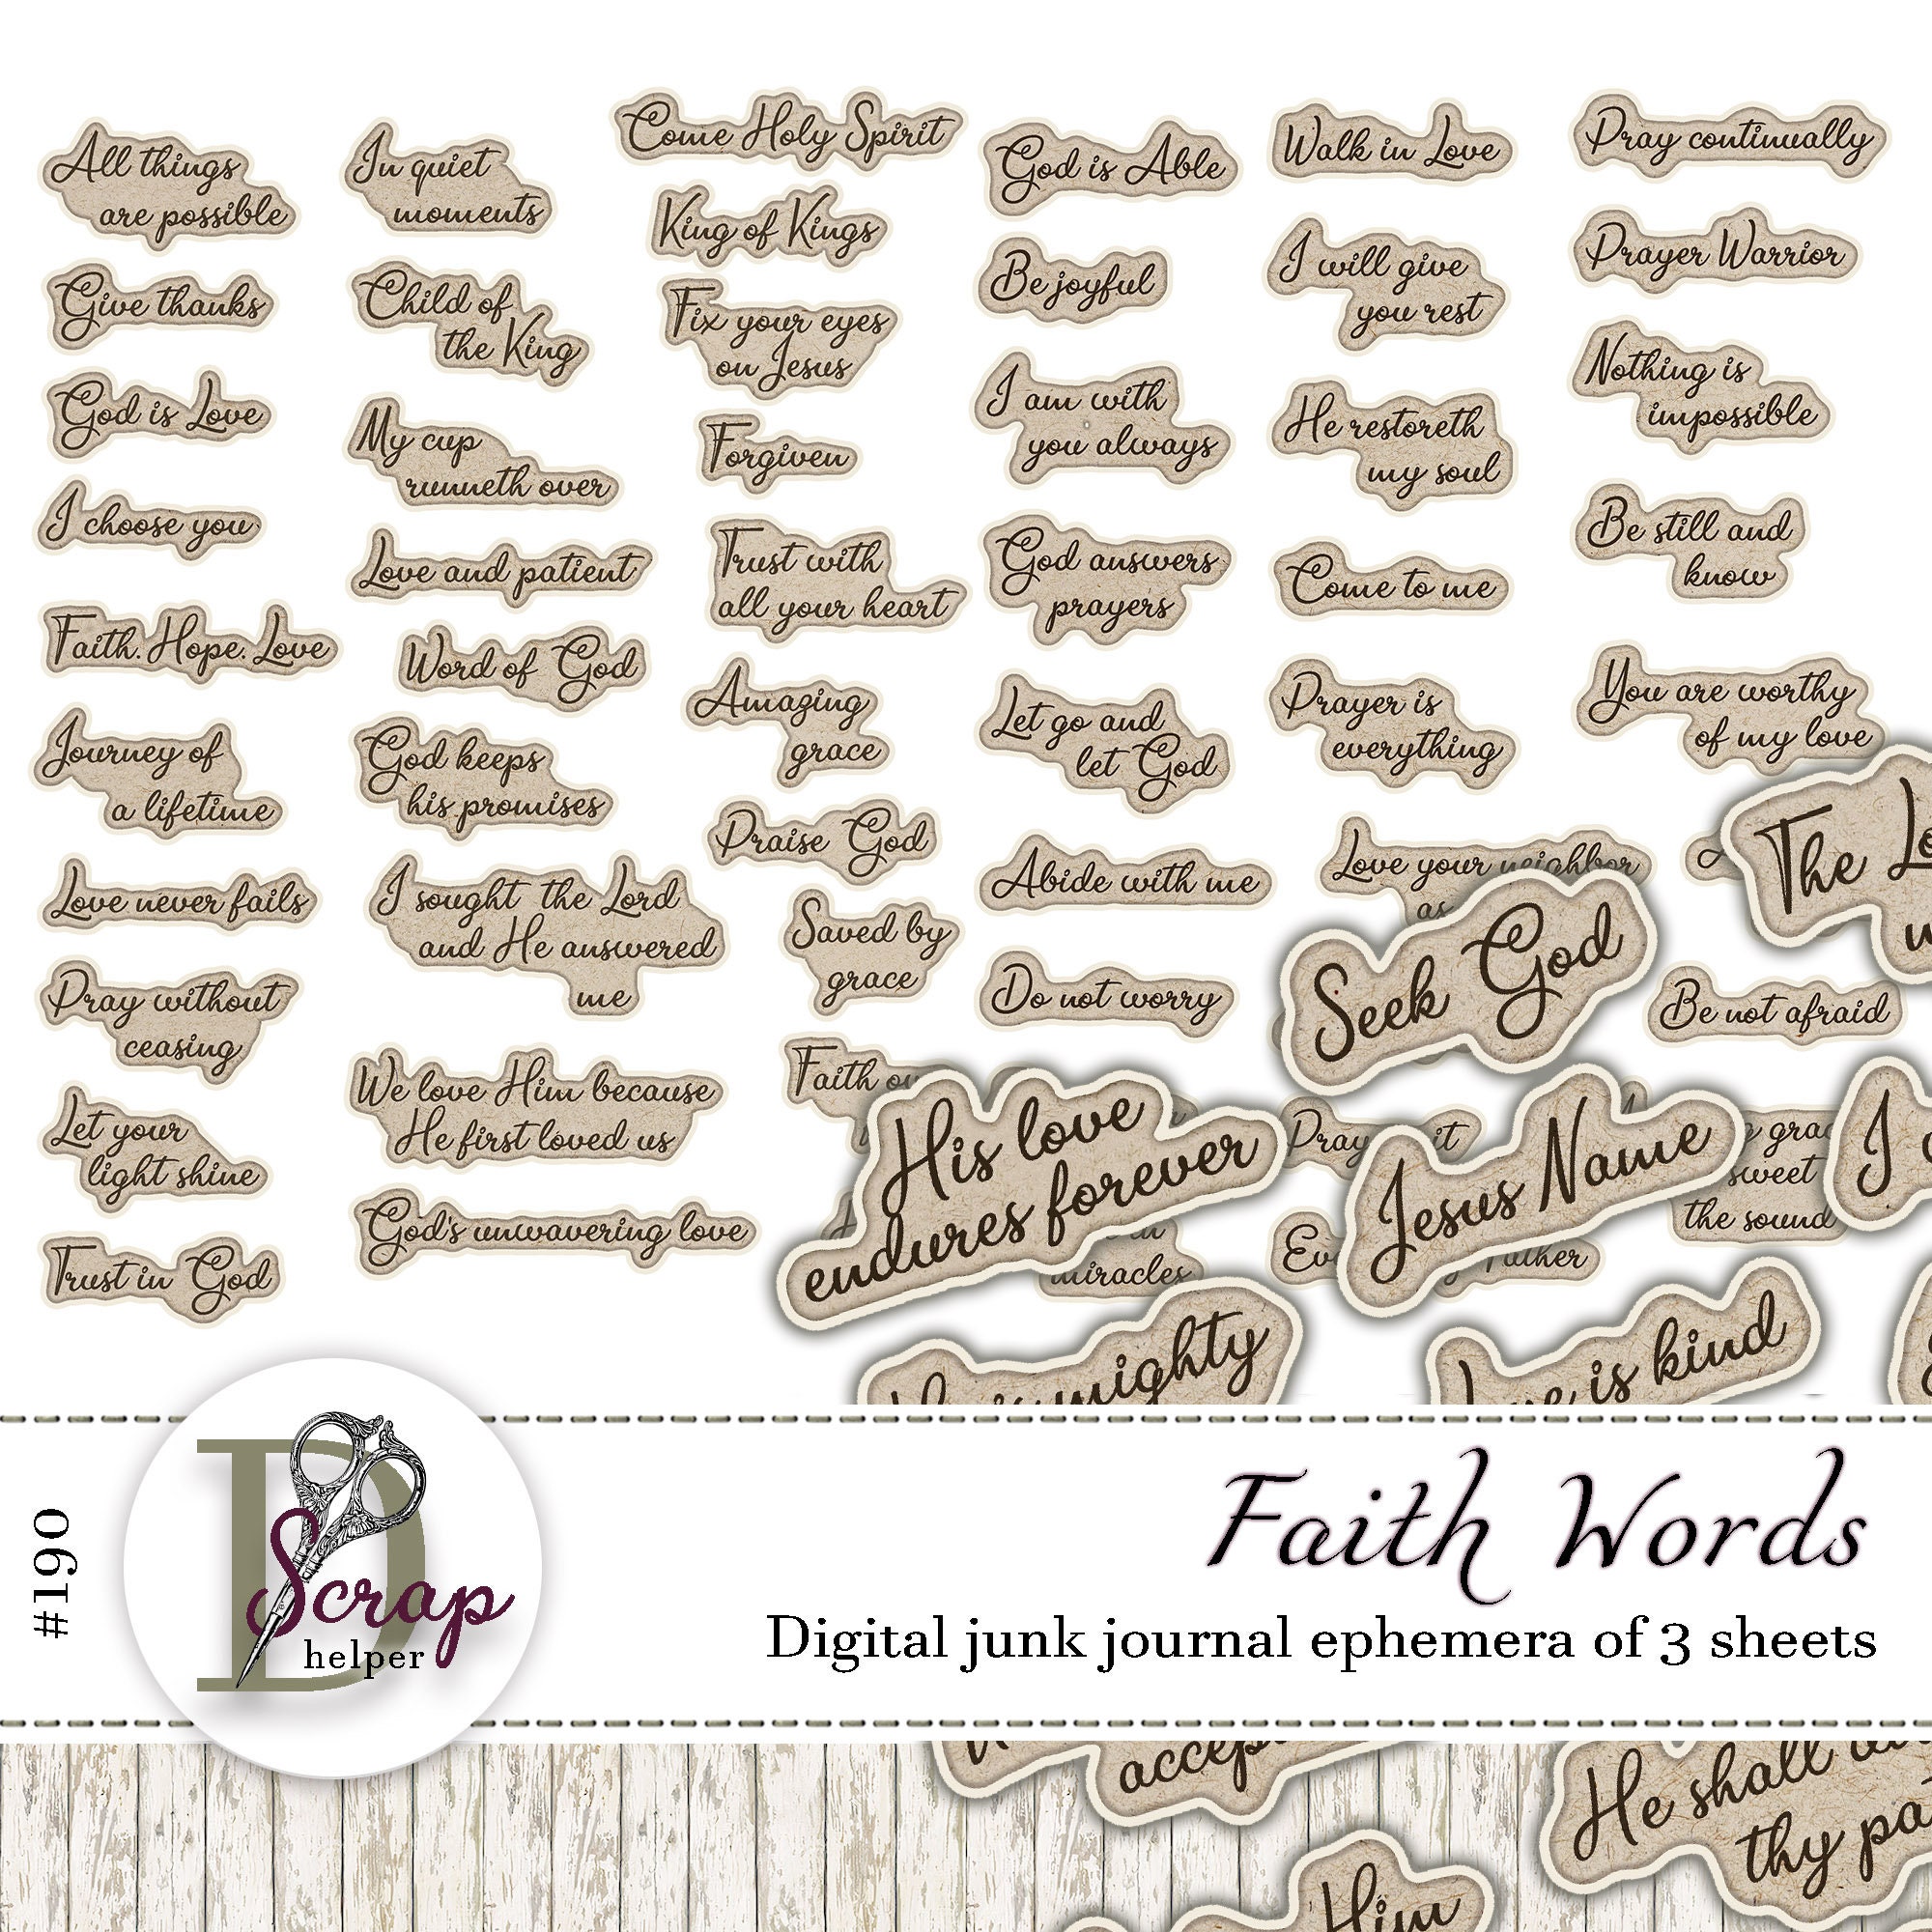 All things
are possible
Give thanks
God is Love
I choose you
Faith. Hope. Love
Journey of
a lifetime
Love never fails
Pray without
ceasing
Let your
light shine
Trust in God
In quiet
moments
Child of
the King
My cup
runneth over
Love and patient
Word of God
God keeps
his promises
I sought the Lord
and He answered
me
We love Him because
He first loved us
God's unwavering love
Come Holy Spirit
King of Kings
Fix your eyes
on Jesus
Forgiven
Trust with
all your heart
Amazing
grace
Praise God
Saved by
grace
Faith
God is Able
Be joyful
I am with
you always
God answers
prayers
Let go and
let God
Abide with me
Do not worry
His love
endures forever
miracles
mighty
Walk in Love
I will give
you rest
He restoreth
my soul
Come to me
Prayer is
everything
Love your neighbor
as
Seek God
Pray it
Jesus Name
is kind
Pray continually
Prayer Warrior
Nothing is
impossible
Be still and
know
You are worthy
of my love
The
Be not afraid
sweet
the sound
I
#190
D
Scrap
helper
Faith Words
Digital junk journal ephemera of 3 sheets
He shall
thy
Him